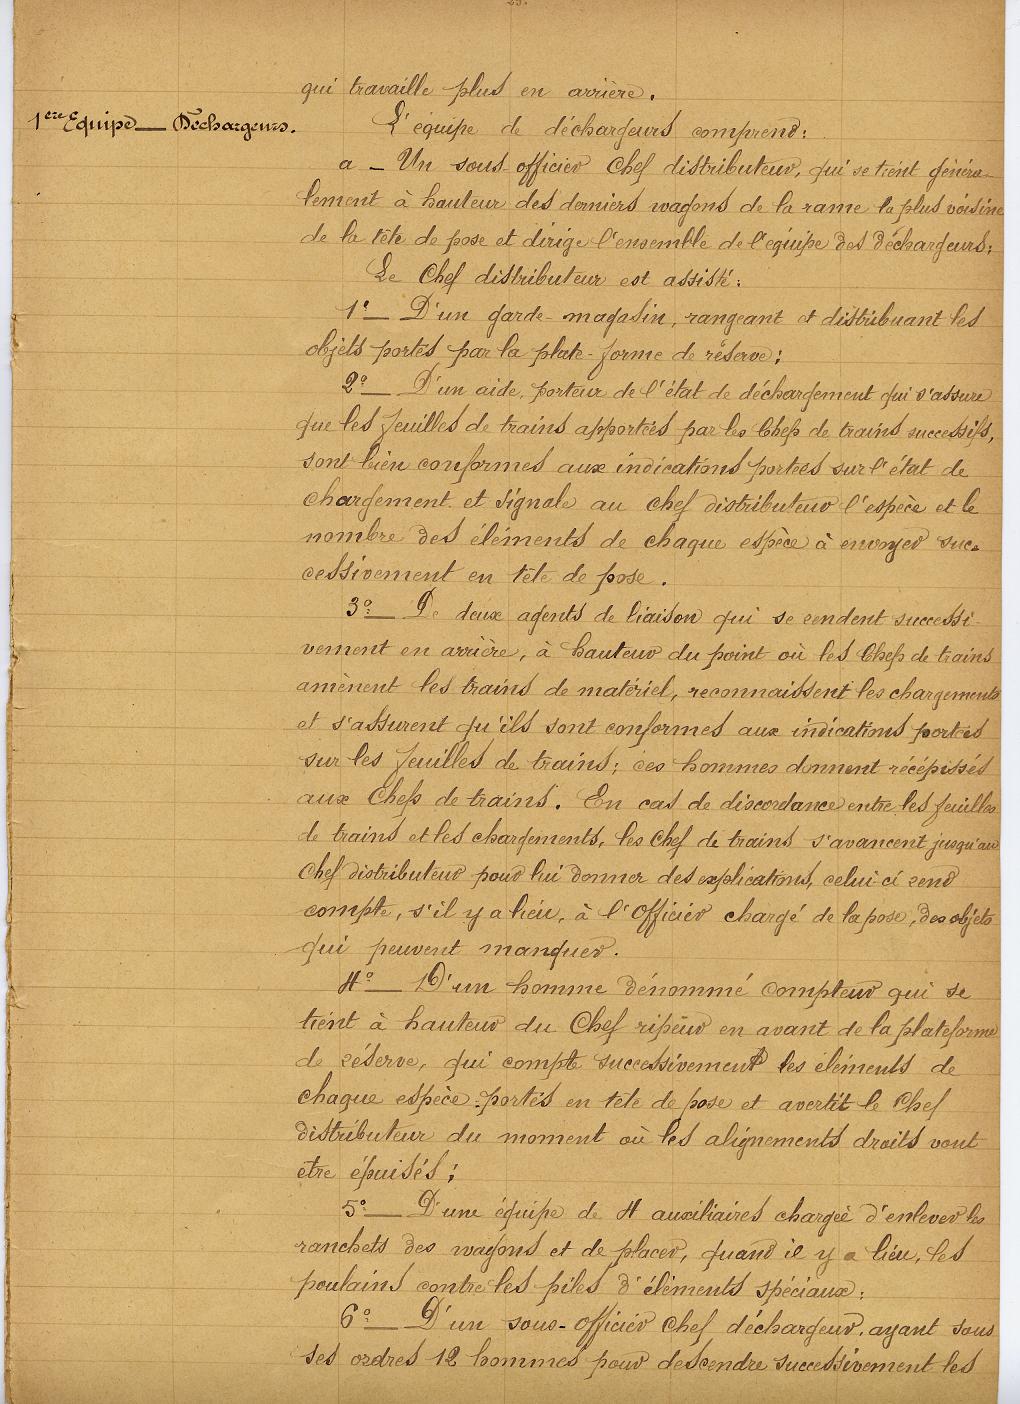 23.
qui travaille plus en arrière.
1ère Equipe — Déchargeurs.
L'équipe de déchargeurs comprend:
a — Un sous-officier Chef distributeur, qui se tient généra-
lement à hauteur des derniers wagons de la rame la plus voisine
de la tête de pose et dirige l'ensemble de l'équipe des déchargeurs;
Le Chef distributeur est assisté:
1° — D'un garde-magasin, rangeant et distribuant les
objets portés par la plate-forme de réserve;
2° — D'un aide, porteur de l'état de déchargement qui s'assure
que les feuilles de trains apportées par les Chefs de trains successifs,
sont bien conformes aux indications portées sur l'état de
chargement et signale au chef distributeur l'espèce et le
nombre des éléments de chaque espèce à envoyer suc-
cessivement en tête de pose.
3° — De deux agents de liaison qui se rendent successi-
vement en arrière, à hauteur du point où les Chefs de trains
amènent les trains de matériel, reconnaissent les chargements
et s'assurent qu'ils sont conformes aux indications portées
sur les feuilles de trains; ces hommes donnent récépissés
aux Chefs de trains. En cas de discordance entre les feuilles
de trains et les chargements, les Chef de trains s'avancent jusqu'au
Chef distributeur pour lui donner des explications, celui-ci rend
compte, s'il y a lieu, à l'Officier chargé de la pose, des objets
qui peuvent manquer.
4° — D'un homme dénommé compteur qui se
tient à hauteur du Chef ripeur en avant de la plateforme
de réserve, qui compte successivement les éléments de
chaque espèce portés en tête de pose et avertit le Chef
distributeur du moment où les alignements droits vont
etre épuisés;
5° — D'une équipe de 4 auxiliaires chargée d'enlever les
ranchets des wagons et de placer, quand il y a lieu, les
poulains contre les piles d'éléments spéciaux;
6° — D'un sous-officier Chef déchargeur, ayant sous
ses ordres 12 hommes pour descendre successivement les